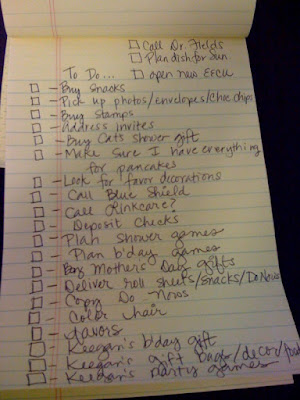 Call Dr. Fields
Plan dish for Sun
To Do... open new EECU
- Buy Snacks
- Pick up photos/envelopes/Choc chips
- Buy Stamps
- Address invites
- Buy Cats shower gift
- Make Sure I have everything
for pancakes
- Look for favor decorations
- Call Blue Shield
- Call Linkcare?
- Deposit Checks
- Plan Shower games
- Plan b'day games
- Buy Mothers Day gifts
- Deliver roll sheets/snacks/Do Nows
- Copy Do Nows
- Color hair
- favors
- Keegan's b'day gift
- Keegan's gift bags/decor/food
- Keegan's party games